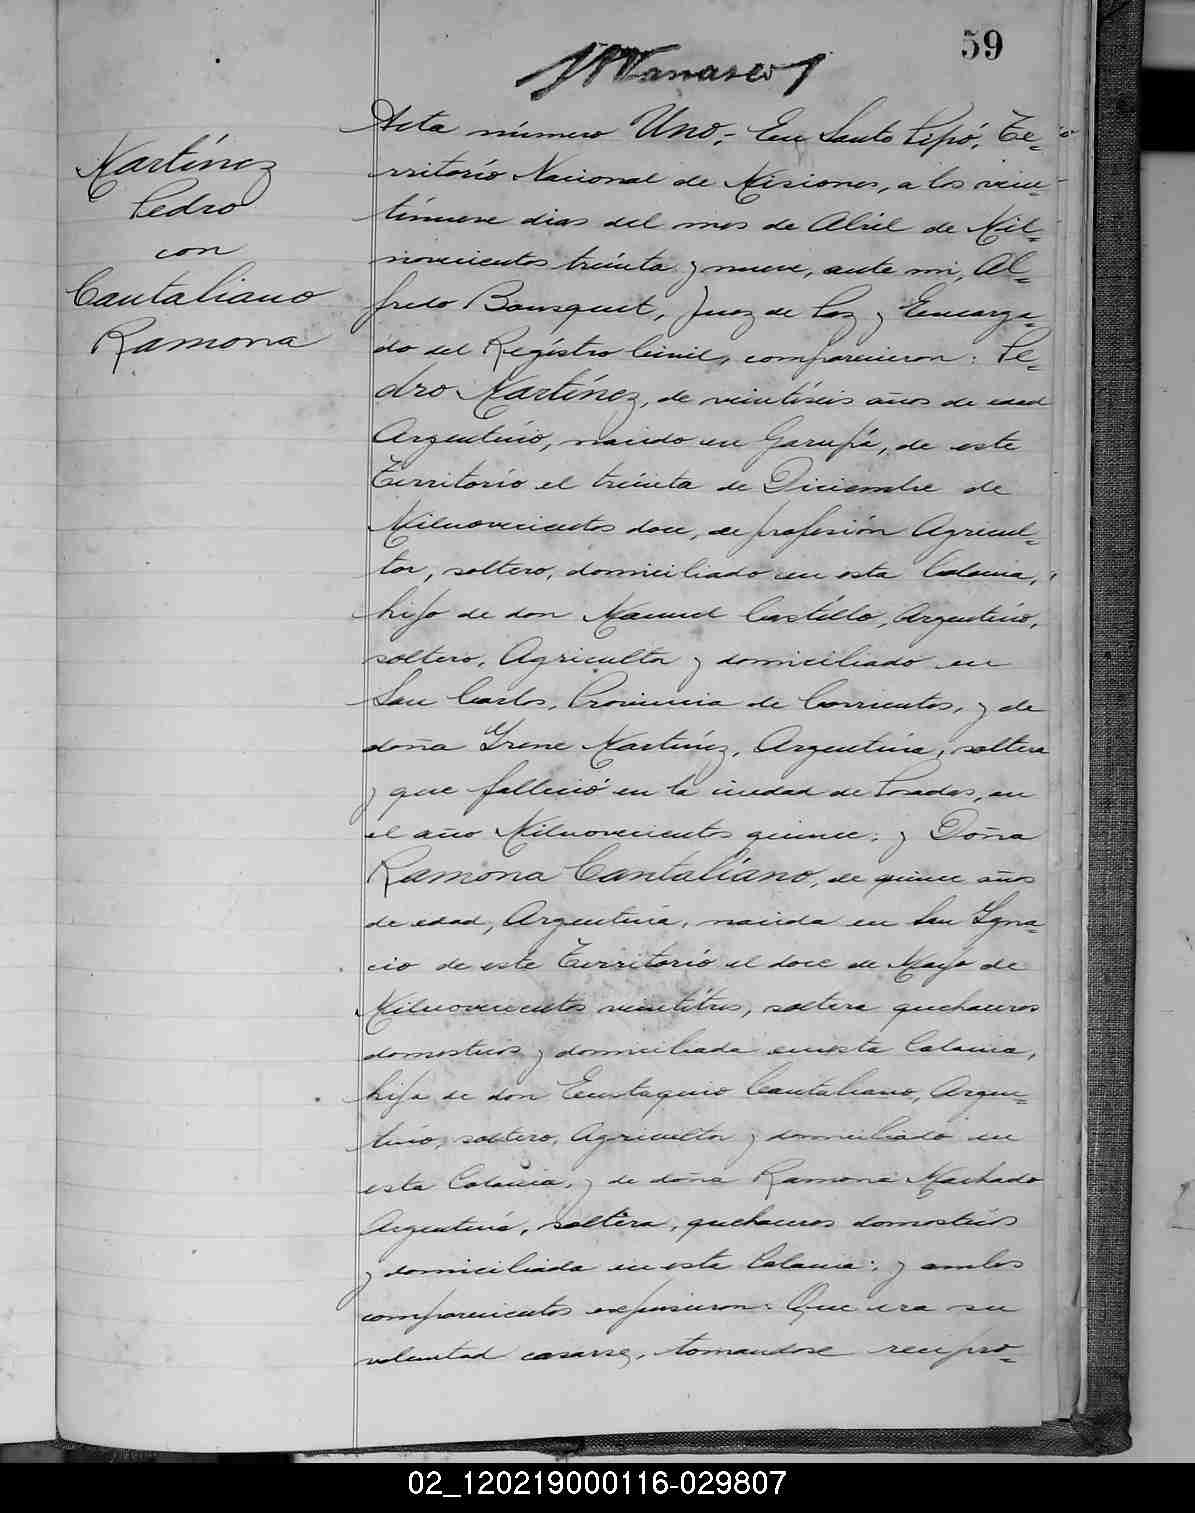 59
Martínez
Pedro
con
Cantaliano
Ramona
Acta número Uno.- En Santo Pipó, Te-
rritorio Nacional de Misiones, a los vein-
tinueve dias del mes de Abril de Mil-
novecientos treinta y nueve, ante mi, Al-
fredo Bousquet, Juez de Paz y Encarga-
do del Registro Civil, comparecieron: Pe-
dro Martínez, de veintiséis años de edad
Argentino, nacido en Garupá, de este
Territorio el treinta de Diciembre de
Milnovecientos doce, de profesión Agricul-
tor, soltero, domiciliado en esta Colonia,
hijo de don Manuel Castillo, Argentino,
soltero, Agricultor y domiciliado en
San Carlos, Provincia de Corrientes, y de
doña Irene Martínez, Argentina, soltera
y que falleció en la ciudad de Posadas, en
el año Milnovecientos quince; y Doña
Ramona Cantaliano, de quince años
de edad, Argentina, nacida en San Igna-
cio de este Territorio el doce de Mayo de
Milnovecientos veintitres, soltera quehaceres
domesticos y domiciliada en esta Colonia,
hija de don Eustaquio Cantaliano, Argen-
tino, soltero, Agricultor y domiciliado en
esta Colonia, y de doña Ramona Machado
Argentina, soltera, quehaceres domesticos
y domiciliada en esta Colonia; y ambos
comparecientes expusieron: Que era su
voluntad casarse, tomandose recipro-
02_120219000116-029807